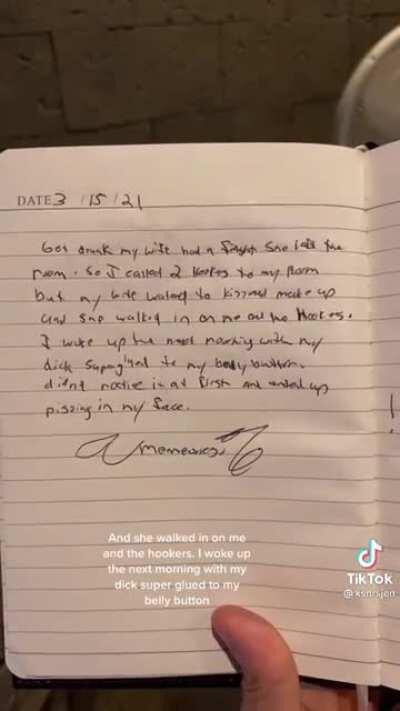 DATE 3 / 15 / 21
Got drunk my wife had a fight She left the
room. So I called 2 Hookes to my Room
but my wife wanted to kiss and make up
and She walked in on me and the Hookers.
I woke up the next morning with my
dick Superglued to my belly button.
didnt notice it at first and ended up
pissing in my face.
And she walked in on me
and the hookers. I woke up
the next morning with my
dick super glued to my
belly button
TikTok